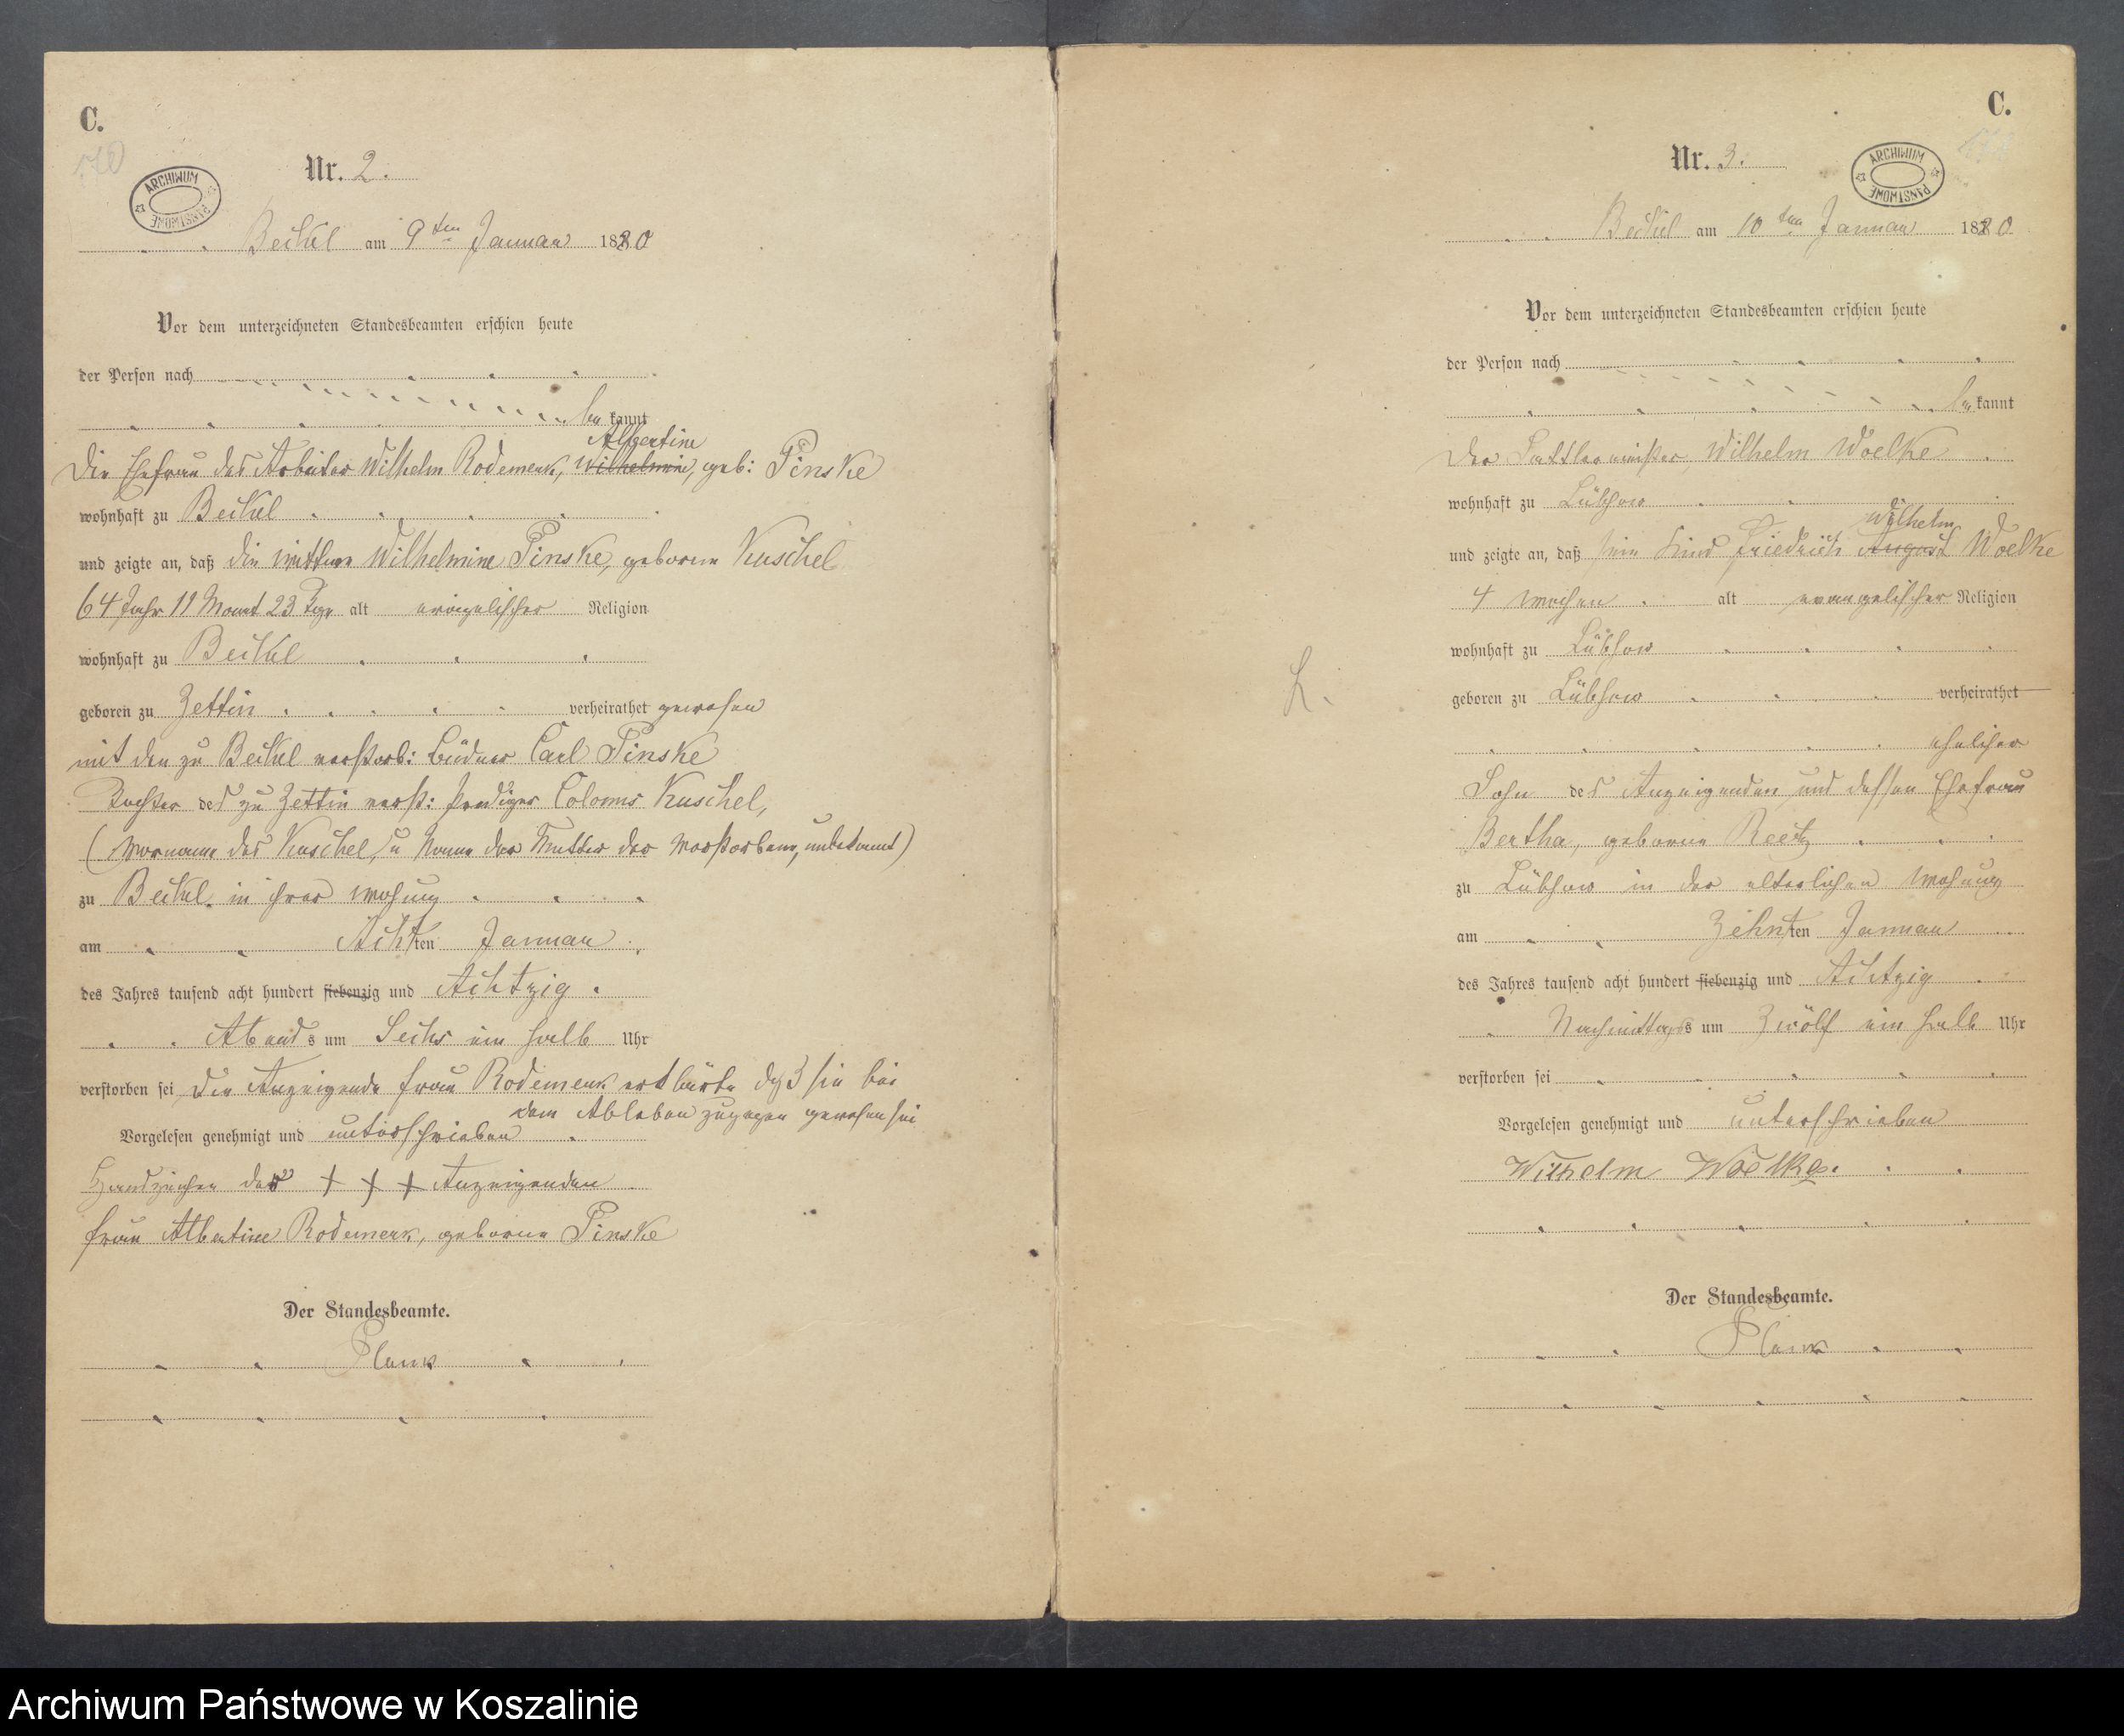 C.
ARCHIWUM PAŃSTWOWE
Nr. 2.
Beckel am 9ten Januar 1880
Vor dem unterzeichneten Standesbeamten erschien heute
der Person nach
be kannt
Albertine
Die Ehefrau des Arbeiter Wilhelm Rodemerk, Wilhelmine, geb: Pinske
wohnhaft zu Beckel
und zeigte an, daß die Wittwe Wilhelmine Pinske, geborene Kuschel
64 Jahr 11 Monat 23 Tage alt evangelischer Religion
wohnhaft zu Beckel
geboren zu Zettin verheirathet gewesen
mit den zu Beckel verstorb: Büdner Carl Pinske
Tochter des zu Zettin verst: Kuschel,
(Vorname des Kuschel, u Name der Mutter der Verstorbene, unbekannt)
zu Beckel, in ihrer Wohnung
am Achtten Januar
des Jahres tausend acht hundert siebenzig und Achtzig
Abends um Sechs ein halb Uhr
verstorben sei Die Anzeigende Frau Rodemerk erklärte daß sie bei
dem Ableben zugegen gewesen sei
Vorgelesen genehmigt und unterschrieben
Handzeichen der + + + Anzeigenden
Frau Albertine Rodemerk, geborene Pinske
Der Standesbeamte.
Plank
C.
ARCHIWUM PAŃSTWOWE
Nr. 3.
Beckel am 10ten Januar 1880
Vor dem unterzeichneten Standesbeamten erschien heute
der Person nach
be kannt
Der Sattlermeister, Wilhelm Woelke
wohnhaft zu Lübzow
Wilhelm
und zeigte an, daß sein Kind Friedrich August Woelke
4 Wochen alt evangelischer Religion
wohnhaft zu Lübzow
L.
geboren zu Lübzow verheirathet
ehelicher
Sohn des Anzeigenden und dessen Ehefrau
Bertha, geborene Reetz
zu Lübzow in der elterlichen Wohnung
am Zehnten Januar
des Jahres tausend acht hundert siebenzig und Achtzig
Nachmittags um Zwölf ein halb Uhr
verstorben sei
Vorgelesen genehmigt und unterschrieben
Wilhelm Woelke.
Der Standesbeamte.
Plank
Archiwum Państwowe w Koszalinie